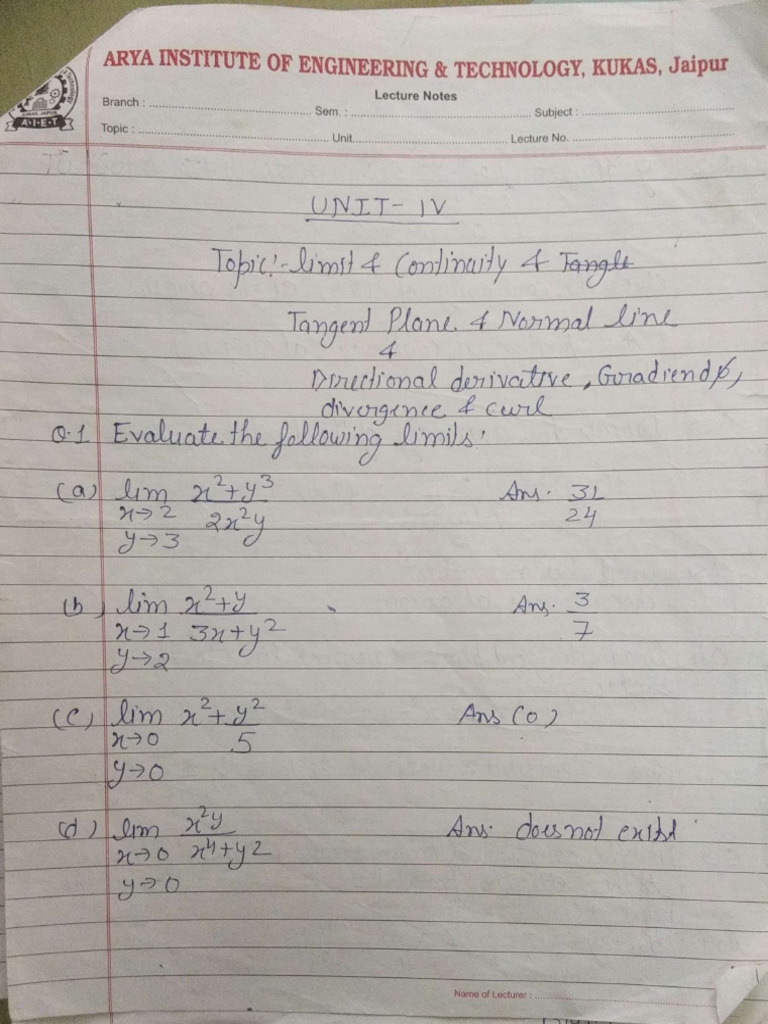 ARYA INSTITUTE OF ENGINEERING & TECHNOLOGY, KUKAS, Jaipur
Lecture Notes
Branch : Sem. : Subject :
Topic : Unit Lecture No.
A.I.E.T
UNIT- IV
Topic:- limit & Continuity & Tangle
Tangent Plane & Normal line
&
Directional derivative, Gradiend,
divergence & curl
Q.1 Evaluate the following limits.
(a) lim x²+y³ Ans. 31
x→2 2x²y 24
y→3
(b) lim x²+y Ans. 3
x→1 3x+y² 7
y→2
(c) lim x²+y² Ans (0)
x→0 5
y→0
(d) lim x²y Ans. does not exist
x→0 x⁴+y2
y→0
Name of Lecturer :